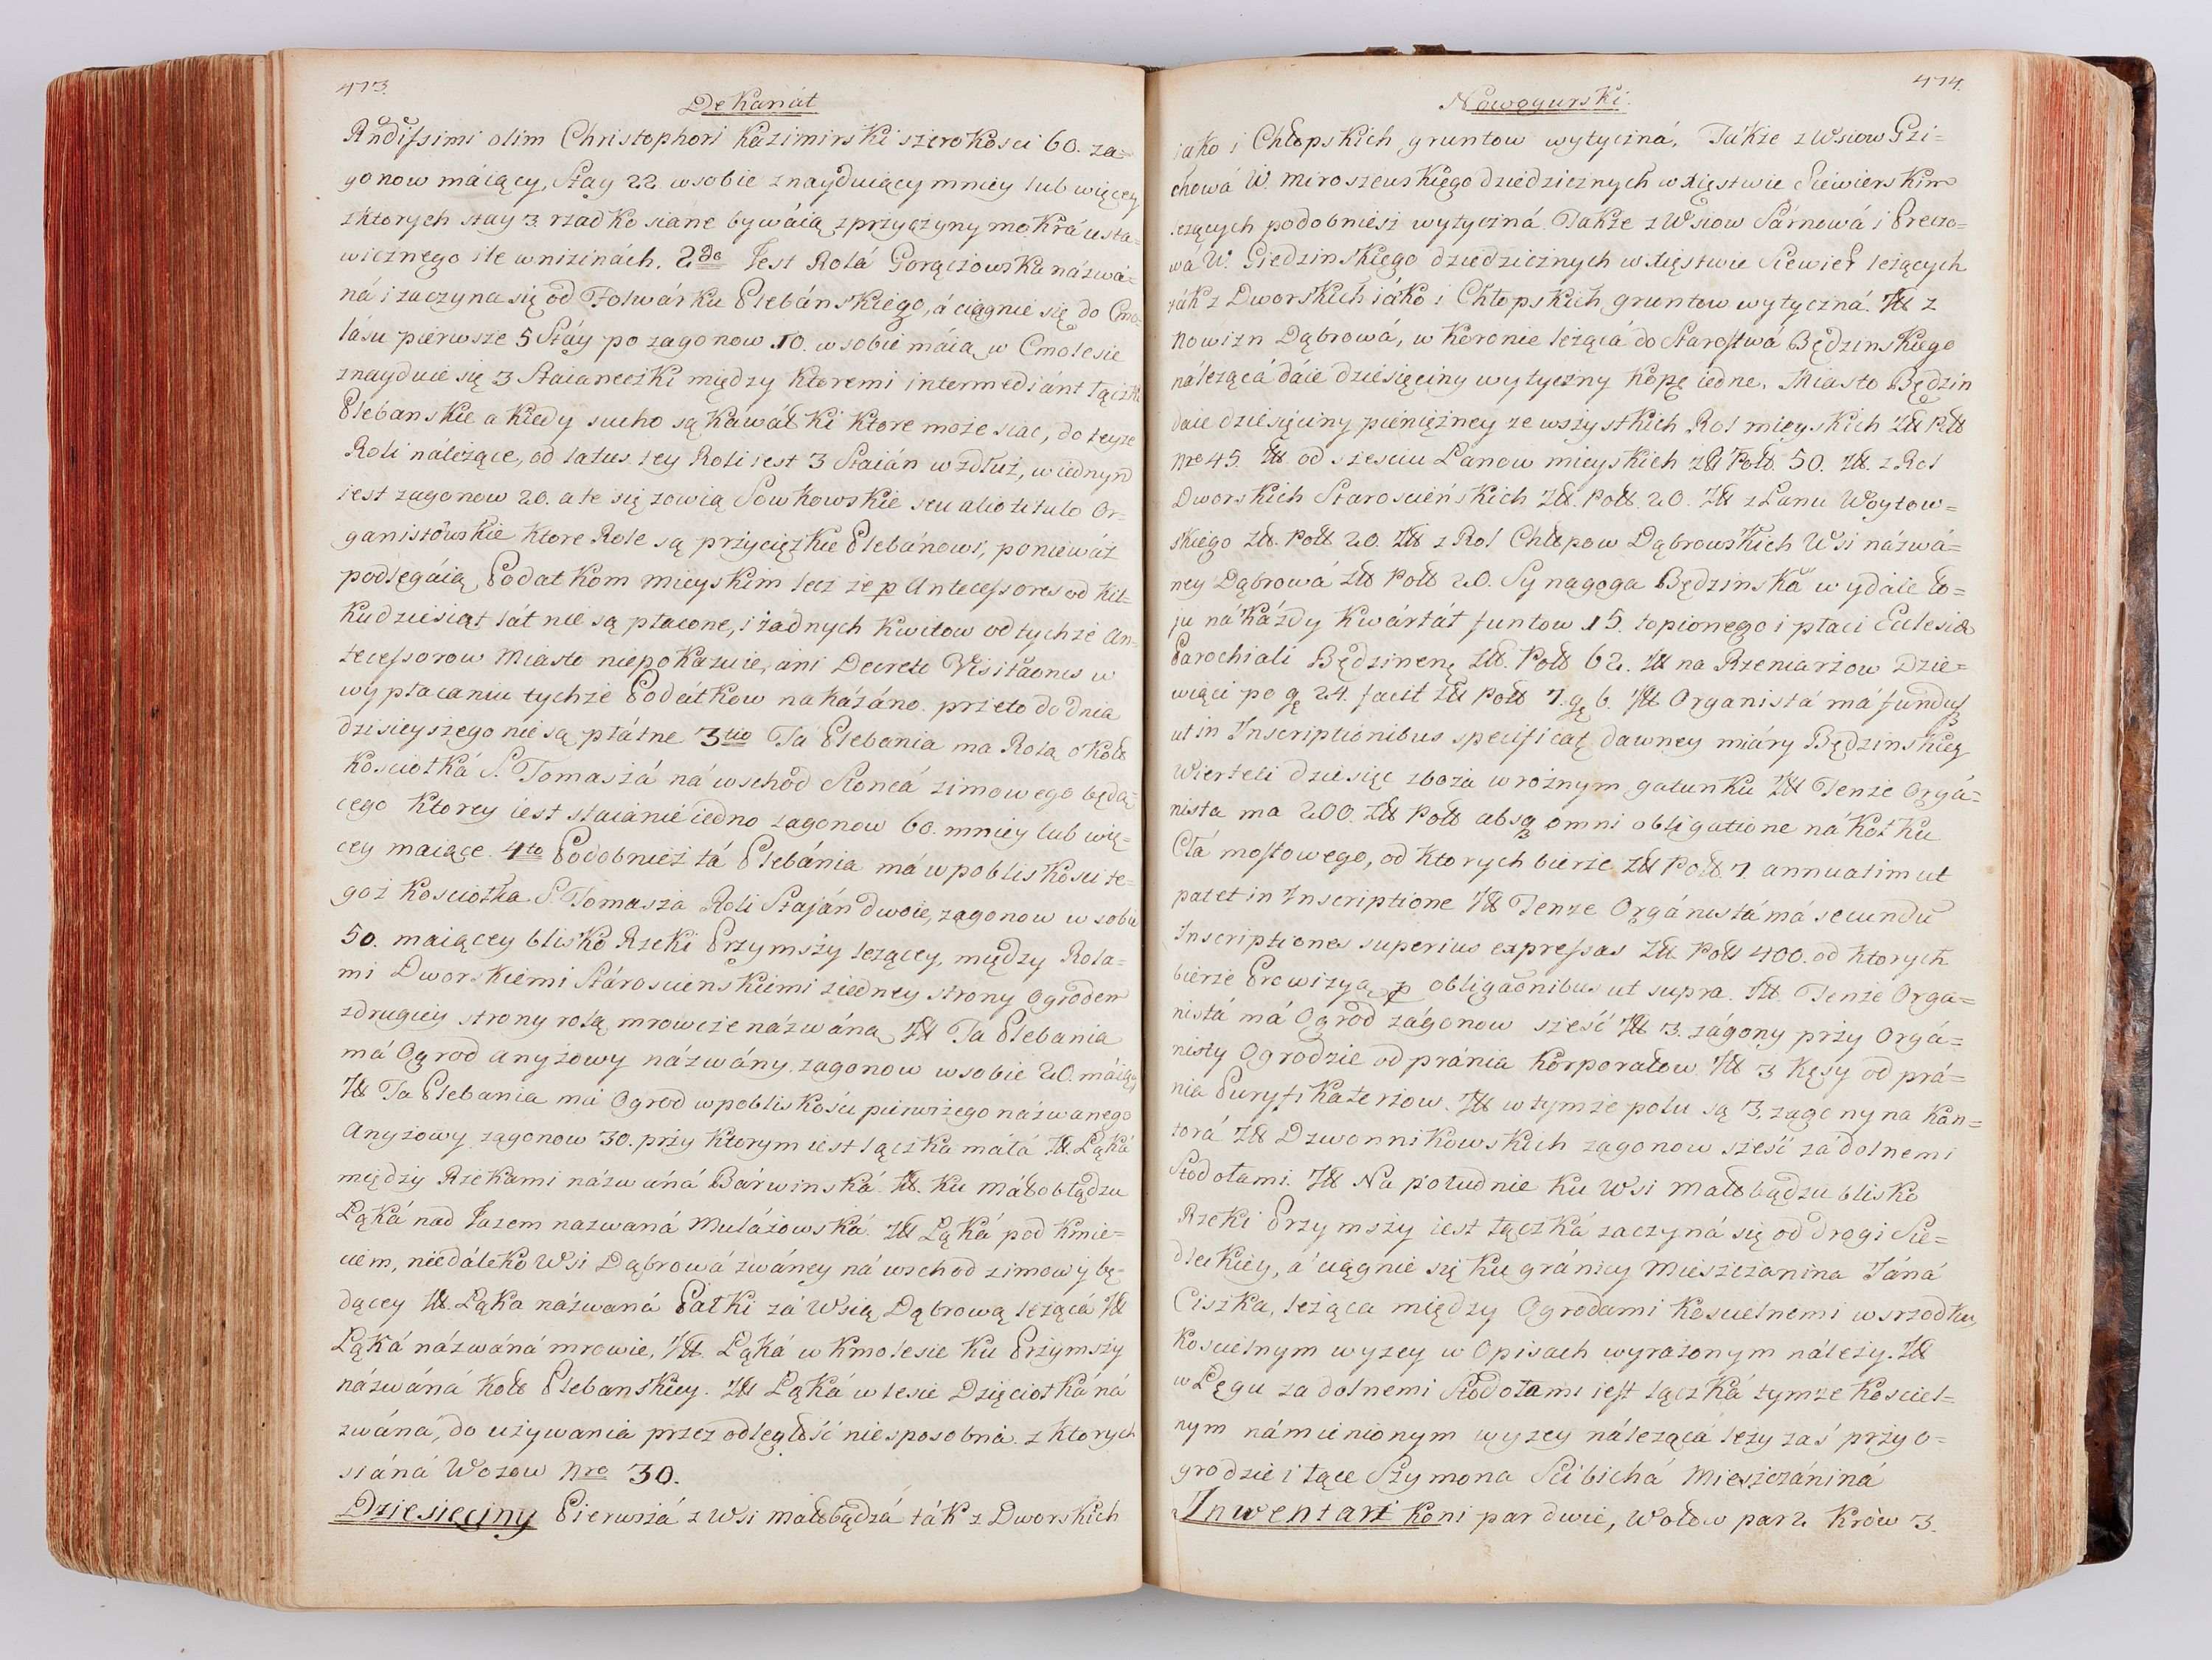 473.
Dekanát
Rndissimi olim Christophori Kazimirski szerokosci 60. za=
gonow máiący, Stay 22 wsobie znayduiący mniey lub więcey
zktorych stay 3. rzadko siane bywáią z przyczyny mokra usta=
wicznego ile wnizinách. 2do Iest Rolá Gorączowska názwá=
ná i zaczyna się od Folwárku Plebánskiego, á ciągnie się do Cmo=
lásu pierwsze 5 Stáy po zagonow 10. wsobie máią w Cmolesie
znayduie się 3 Staianeczki między ktoremi intermediánt łączki
Plebanskie a kiedy sucho są kawáłki ktore może siac, do teyze
Roli náleżące, od latus tey Roli iest 3 Staián wzdłuż, w iednym
iest zagonow 20. a te się zowią Sowkowskie seu alio titulo Or=
ganistowskie ktore Role są przyciężkie Plebánowi, ponieważ
podlegáią Podatkom mieyskim lecz że p Antecessores od kil=
kudziesiąt lát nie są płacone, i żadnych kwitow od tychże An=
tecessorow Miasto niepokazuie, áni Decreto Visitaonis w
wypłacaniu tychże Podátkow nakázáno. przeto do dnia
dzisieyszego nie są płátne 3tio Ta Plebania ma Rolą okoł
kosciołká S. Tomaszá ná wschod Słoncá zimowego będą=
cego ktorey iest staianie iedno zagonow 60. mniey lub wię=
cey maiące. 4to Podobnież tá Plebánia má w pobliskosci te=
goż kosciołka S. Tomasza Roli Staján dwoie, zagonow w sobie
50. maiącey blisko Rzeki Przymszy leżącey, między Rola=
mi Dworskiemi Stárościenskiemi ziedney strony Ogrodem
zdrugiey strony rolą mrowcze názwáną Itt Ta Plebania
má Ogrod anyżowy názwány zagonow wsobie 20. máiący
Itt Ta Plebania má Ogrod wpobliskośći pierwszego názwanego
Anyżowy zagonow 30. przy ktorym iest łączka máłá Itt. Łąká
między Rzekami názwáná Bárwinská. Itt. ku Máłobłądzu
Łąká nad Iazem nazwaná Mulázowská. Itt Łąká pod kmie=
ciem, niedáleko Wsi Dąbrowá zwáney ná wschod zimowy bę=
dącey Itt. Łąka názwaná Patki zá Wsią Dąbrową leżącá Itt
Łąká názwáná mrowie, Itt. Łąká w kmolesie ku Przymszy
názwáná koło Plebanskiey. Itt Łąká w lesie Dzięciołká ná
zwáná, do używania przez odległość niesposobná. z ktorych
siáná Wozow Nro 30.
Dziesięciny Pierwszá z Wsi małobądzá ták z Dworskich
474.
Nowogurski.
iako i Chłopskich gruntow wytyczná. Tákże z Wsiow Gzi=
chowá W. Miroszeuskiego dziedzicznych w Xięstwie Siewierskim
leżących podobniesz wytyczná. Także z Wsiow Sárnowá i Preczo=
wá W. Siedzinskiego dziedzicznych w Xięstwie Siewier leżących
ják z Dworskich iáko i Chłopskich gruntow wytyczná. Itt z
Nowizn Dąbrowá, w koronie leżącá do Starostwá Będzinskiego
náleżącá dáie dziesięciny wytyczny kopę iedne. Miasto Będzin
daie dziesięciny pieniężney ze wszystkich Rol mieyskich Zł Poł
Nro 45. Itt. od szesciu Łanow mieyskich zł Poł. 50. Itt. z Rol
Dworskich Staroscieńskich Zł. Poł. 20. Itt z Łanu Woytow=
skiego Zł. Poł 20. Itt z Rol Chłopow Dąbrowskich Wsi názwá=
ney Dąbrowá Zł Poł 20. Synagoga Będzinská wydáie ło=
ju ná káżdy kwártáł funtow 15. topionego i płaci Ecclesiæ
Parochiali Będzinenę Zł. Poł 62. Itt na Rzeniarzow Dzie=
więci po gę 24. facit Zł Poł 7. gę 6. Itt Organistá má fundusz
ut in Inscriptionibus specificat dawney miáry Będzinskiey
Wierteli dziesięc zboża w rożnym gatunku Itt Tenże Orgá=
nista ma 200. Zł Poł absq omni obligatione ná kotku
Cła mostowego, od ktorych bierze Zł Poł 7. annuatim ut
patet in Inscriptione Itt Tenze Orgánistá má secundu
Inscriptiones superius expressas Zł. Poł 400. od ktorych
bierze Prowizyą p obligaonibus ut supra. Itt. Tenże Orga=
nistá má Ogrod zágonow sześć Itt 3. zágony przy Orgá=
nisty Ogrodzie od pránia korporałow. Itt 3 kęsy od prá=
nia Puryfikaterzow. Itt w tymże polu są 3. zagony na kan=
torá Itt Dzwonnikowskich zagonow sześć zá dolnemi
Stodołami. Itt Na południe ku Wsi małobądzu blisko
Rzeki Przymszy iest łączká zaczyná się od drogi Sie=
dleckiey, á ciągnie się ku gránicy Mieszczanina Jáná
Ciszka, leżąca między Ogrodami koscielnemi w srzodku,
koscielnym wyzey w Opisach wyrażonym náleży. Itt
w Łęgu za dolnemi Stodołami jest łączká tymże kosciel=
nym námienionym wyzey náleżącá leży záś przy o=
grodzie i łące Szymona Scibichá Mieszczániná
Inwentarz koni par dwie, Wołow par 2 krów 3.